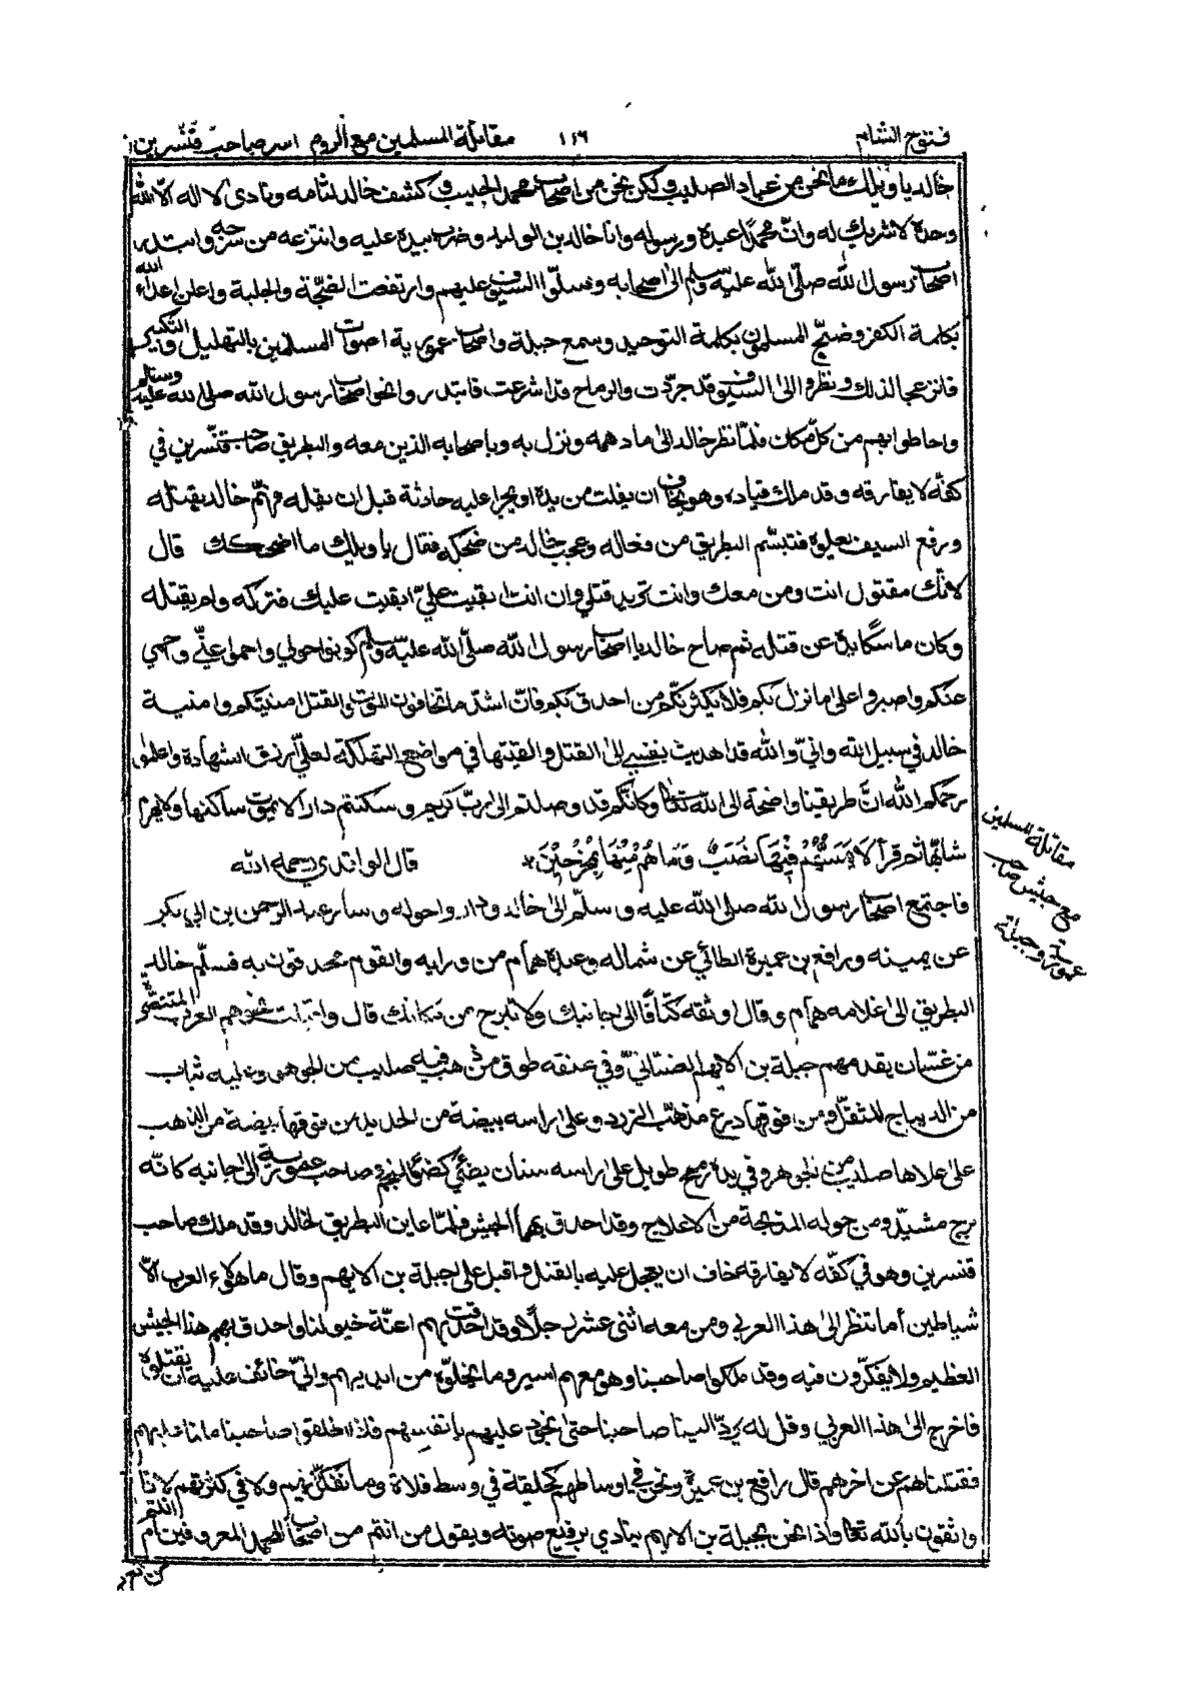 فتوح الشام
١١٦
مقاتلة المسلمين مع الروم اسر صاحب قنّسرين
خالد يا ويلك ما نحن من عباد الصليب ولكن نحن من اصحاب محمد الحبيب وكشف خالد لثامه ونادى لا اله الّا الله
وحده لا شريك له وانّ محمدًا عبده ورسوله وانا خالد بن الوليد وضرب بيده عليه وانتزعه من سرجه وابتدر
اصحاب رسول الله صلّى الله عليه وسلم الى اصحابه وسلّوا السيوف عليهم وارتفعت الضجّة والجلبة واعلن اعداء الله
بكلمة الكفر وضجّ المسلمون بكلمة التوحيد وسمع جبلة واصحاب عمورية اصوات المسلمين بالتهليل والتكبير
فانزعجا لذلك ونظروا الى السيوف قد جرّدت والرماح قد اشرعت فابتدروا نحو اصحاب رسول الله صلى الله عليه وسلم
واحاطوا بهم من كلّ مكان فلمّا نظر خالد الى ما دهمه ونزل به وباصحابه الذين معه والبطريق صاحب قنّسرين في
كفّه لا يفارقه وقد ملك قياده وهو يخاف ان يفلت من يده او يجرا عليه حادثة قبل ان يقتله فهمّ خالد بقتله
ورفع السيف ليعلوه فتبسّم البطريق من فعاله وعجب خالد من ضحكه فقال يا ويلك ما اضحكك قال
لانّك مقتول انت ومن معك وانت تريد قتلي وان انت ابقيت عليّ ابقيت عليك فتركه ولم يقتله
وكان ماسكا بدّ عن قتله ثم صاح خالد يا اصحاب رسول الله صلّى الله عليه وسلم كونوا حولي واحموا عنّي وحمي
عنكم واصبروا على ما نزل بكم فلا يكثرنّكم من احدق بكم فانّ اشدّ ما تخافون القتل امنيتكم وامنية
خالد في سبيل الله وانّي والله قد اهديت نفسي الى القتل والقيتها في مواضع التهلكة لعلّي ارزق الشهادة واعلموا
رحمكم الله انّ طريقنا واضحة الى الله تعالى وكانّكم قد وصلتم الى ربّ كريم وسكنتم دارًا لا يموت ساكنها ولا يهرم
شابّها ثم قرأ لَا يَمَسُّهُمْ فِيْهَا نَصَبٌ وَمَا هُمْ مِنْهَا بِمُخْرَجِيْنَ * قال الواقدي رحمه الله
فاجتمع اصحاب رسول الله صلى الله عليه وسلّم الى خالد وداروا حوله وسار عبد الرحمن بن ابي بكر
عن يمينه ورافع بن عميرة الطائي عن شماله وعبده همام من ورايه والقوم محدقون به فسلّم خالد
البطريق الى غلامه همام وقال اوثقه كتافًا الى جانبك ولا تبرح من مكانك قال واقبلت نحوهم العرب المتنصّرة
من غسّان يقدمهم جبلة بن الايهم الغسّانيّ وفي عنقه طوق من ذهب فيه صليب من الجوهر وعليه ثياب
من الديباج المثقل ومن فوقها درع مذهب الزرد وعلى راسه بيضة من الحديد من فوقها بيضة من الذهب
على اعلاها صليب من الجوهر وفي يده رمح طويل على راسه سنان يضئي كضوء النجم وصاحب عمورية الى جانبه كانّه
برج مشيّد ومن حوله المدبّجة من الاعلاج وقد احدق بهم الجيش فلمّا عاين البطريق لخالد وقد ملك صاحب
قنسرين وهو في كفّه لا يفارقه فخاف ان يعجل عليه بالقتل فاقبل على جبلة بن الايهم وقال ما هؤلاء العرب الّا
شياطين أما تنظر الى هذا العربي ومن معه اثنى عشر رجلًا وقد احدقت بهم اعنّة خيولنا واحدق بهم هذا الجيش
العظيم ولا يفكّرون فيه وقد ملكوا صاحبنا وهو معهم اسير وما يخلّوه من ايديهم وانّي خائف عليه ان يقتلوه
فاخرج الى هذا العربي وقل له يردّ الينا صاحبنا حتى نجود عليهم بانفسهم فاذا اطلقوا صاحبنا
فقتلناهم عن اخرهم قال رافع بن عميرة ونحن في اوساطهم كحلقة في وسط فلاة وما نفكّر فيهم ولا في كثرتهم لانّا
واثقون بالله تعالى واذا نحن بجبلة بن الايهم ينادي برفيع صوته ويقول من انتم من اصحاب محمد المعروفين ام انتم
من
مقاتلة المسلمين
مع جيش صاحب
عمورية وجبلة